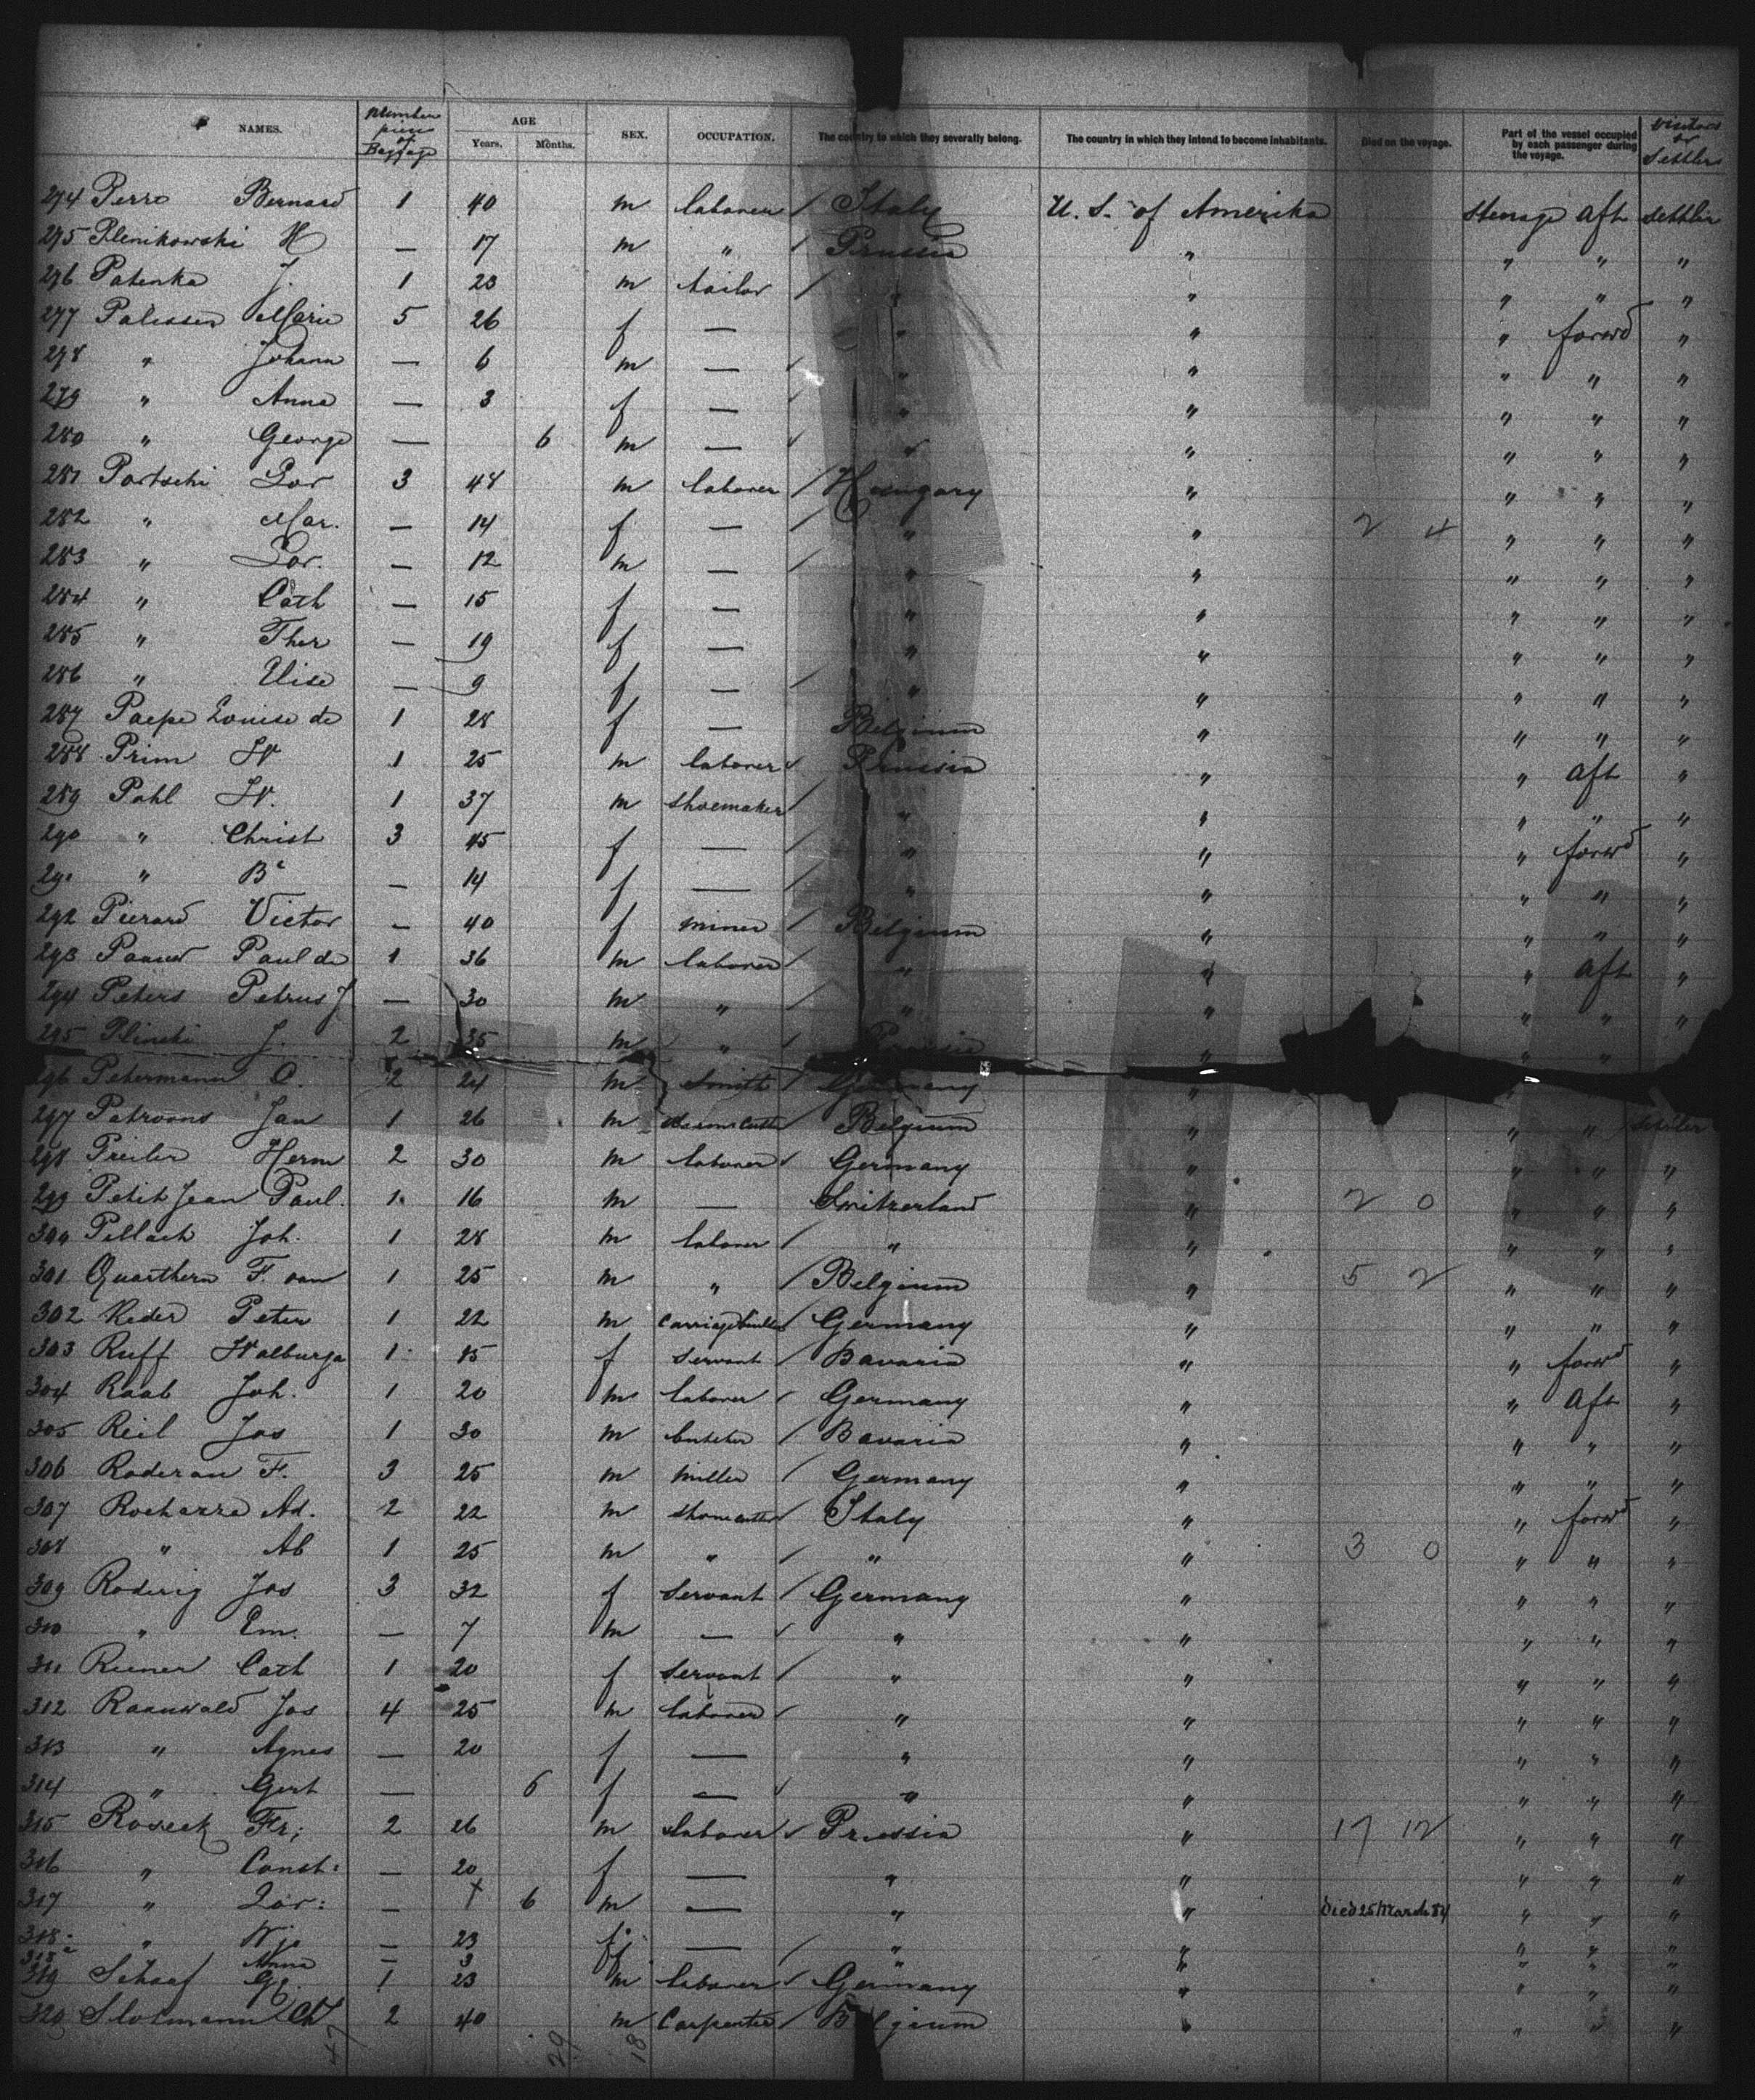 NAMES. Number pieces of Baggage AGE Years. Months. SEX. OCCUPATION. The country to which they severally belong. The country in which they intend to become inhabitants. Died on the voyage. Part of the vessel occupied by each passenger during the voyage. Visitors or Settlers
274 Perro Bernard 1 40 m laborer / Italy U. S. of Amerika Steerage aft settler
275 Plenikowski H — 17 m " / Prussia " " " "
276 Patenka J. 1 23 m tailor / " " " " "
277 Palessen Marie 5 26 f — " " " forwd "
278 " Johann — 6 m — " " " " "
279 " Anna — 3 f — " " " " "
280 " George — 6 m — " " " " "
281 Portschi Gor 3 48 m laborer / Hungary " " " "
282 " Mar. — 14 f — / " " 2 4 " " "
283 " Gor. — 12 m — / " " " " "
284 " Cath — 15 f — " " " " "
285 " Ther — 19 f — " " " " "
286 " Elise — 9 f — / " " " " "
287 Paepe Louise de 1 28 f — Belgium " " " "
288 Prim W 1 25 m laborer Prussia " " aft "
289 Pohl W. 1 37 m shoemaker / " " " " "
290 " Christ 3 45 f — / " " " forwd "
291 " B — 14 f — / " " " " "
292 Pierard Victor — 40 f miner / Belgium " " " "
293 Paauw Paul de 1 36 m laborer / " " " aft "
294 Peters Petrus J — 30 m " / " " " " "
295 Plinski J. 2 35 m " / Prussia " " "
296 Petermann O. 2 24 m Smith / Germany "
297 Patroons Jan 1 26 m Belgium " " " settler
298 Preiler Herm 2 30 m laborer Germany " " " "
299 Petit Jean Paul. 1 16 m — Switzerland " 2 0 " " "
300 Pellach Joh. 1 28 m laborer / " " " " "
301 Quarthern F. van 1 25 m " / Belgium " 5 2 " " "
302 Reder Peter 1 22 m Carriagebuilder Germany " " " "
303 Ruff Walburga 1 15 f Servant / Bavaria " " forwd "
304 Raab Joh. 1 20 m laborer / Germany " " aft "
305 Reil Jos 1 30 m butcher / Bavaria " " " "
306 Roderau F. 3 25 m miller / Germany " " " "
307 Rocharze Ad. 2 22 m stonecutter Italy " " forwd "
308 " Ab 1 25 m " / " " 3 0 " " "
309 Roderig Jos 3 32 f Servant / Germany " " " "
310 " Em. — 7 m — " " " " "
311 Reiner Cath 1 20 f Servant / " " " " "
312 Raauwald Jos 4 25 m laborer " " " " "
313 " Agnes — 20 f — " " " " "
314 " Gert — 6 f — " " " " "
315 Roseck Fr; 2 26 m laborer Prussia " 17 12 " " "
316 " Const: — 20 f — " " " " "
317 " — 6 m — " " Died 25 March 84 " " "
318 " — 23 f — / " " " " "
318a Anna — 3 f " " " " "
319 Schaaf 1 23 m laborer Germany " " " "
320 Slotmann 2 40 m Carpenter / Belgium " " " "
47 29 18